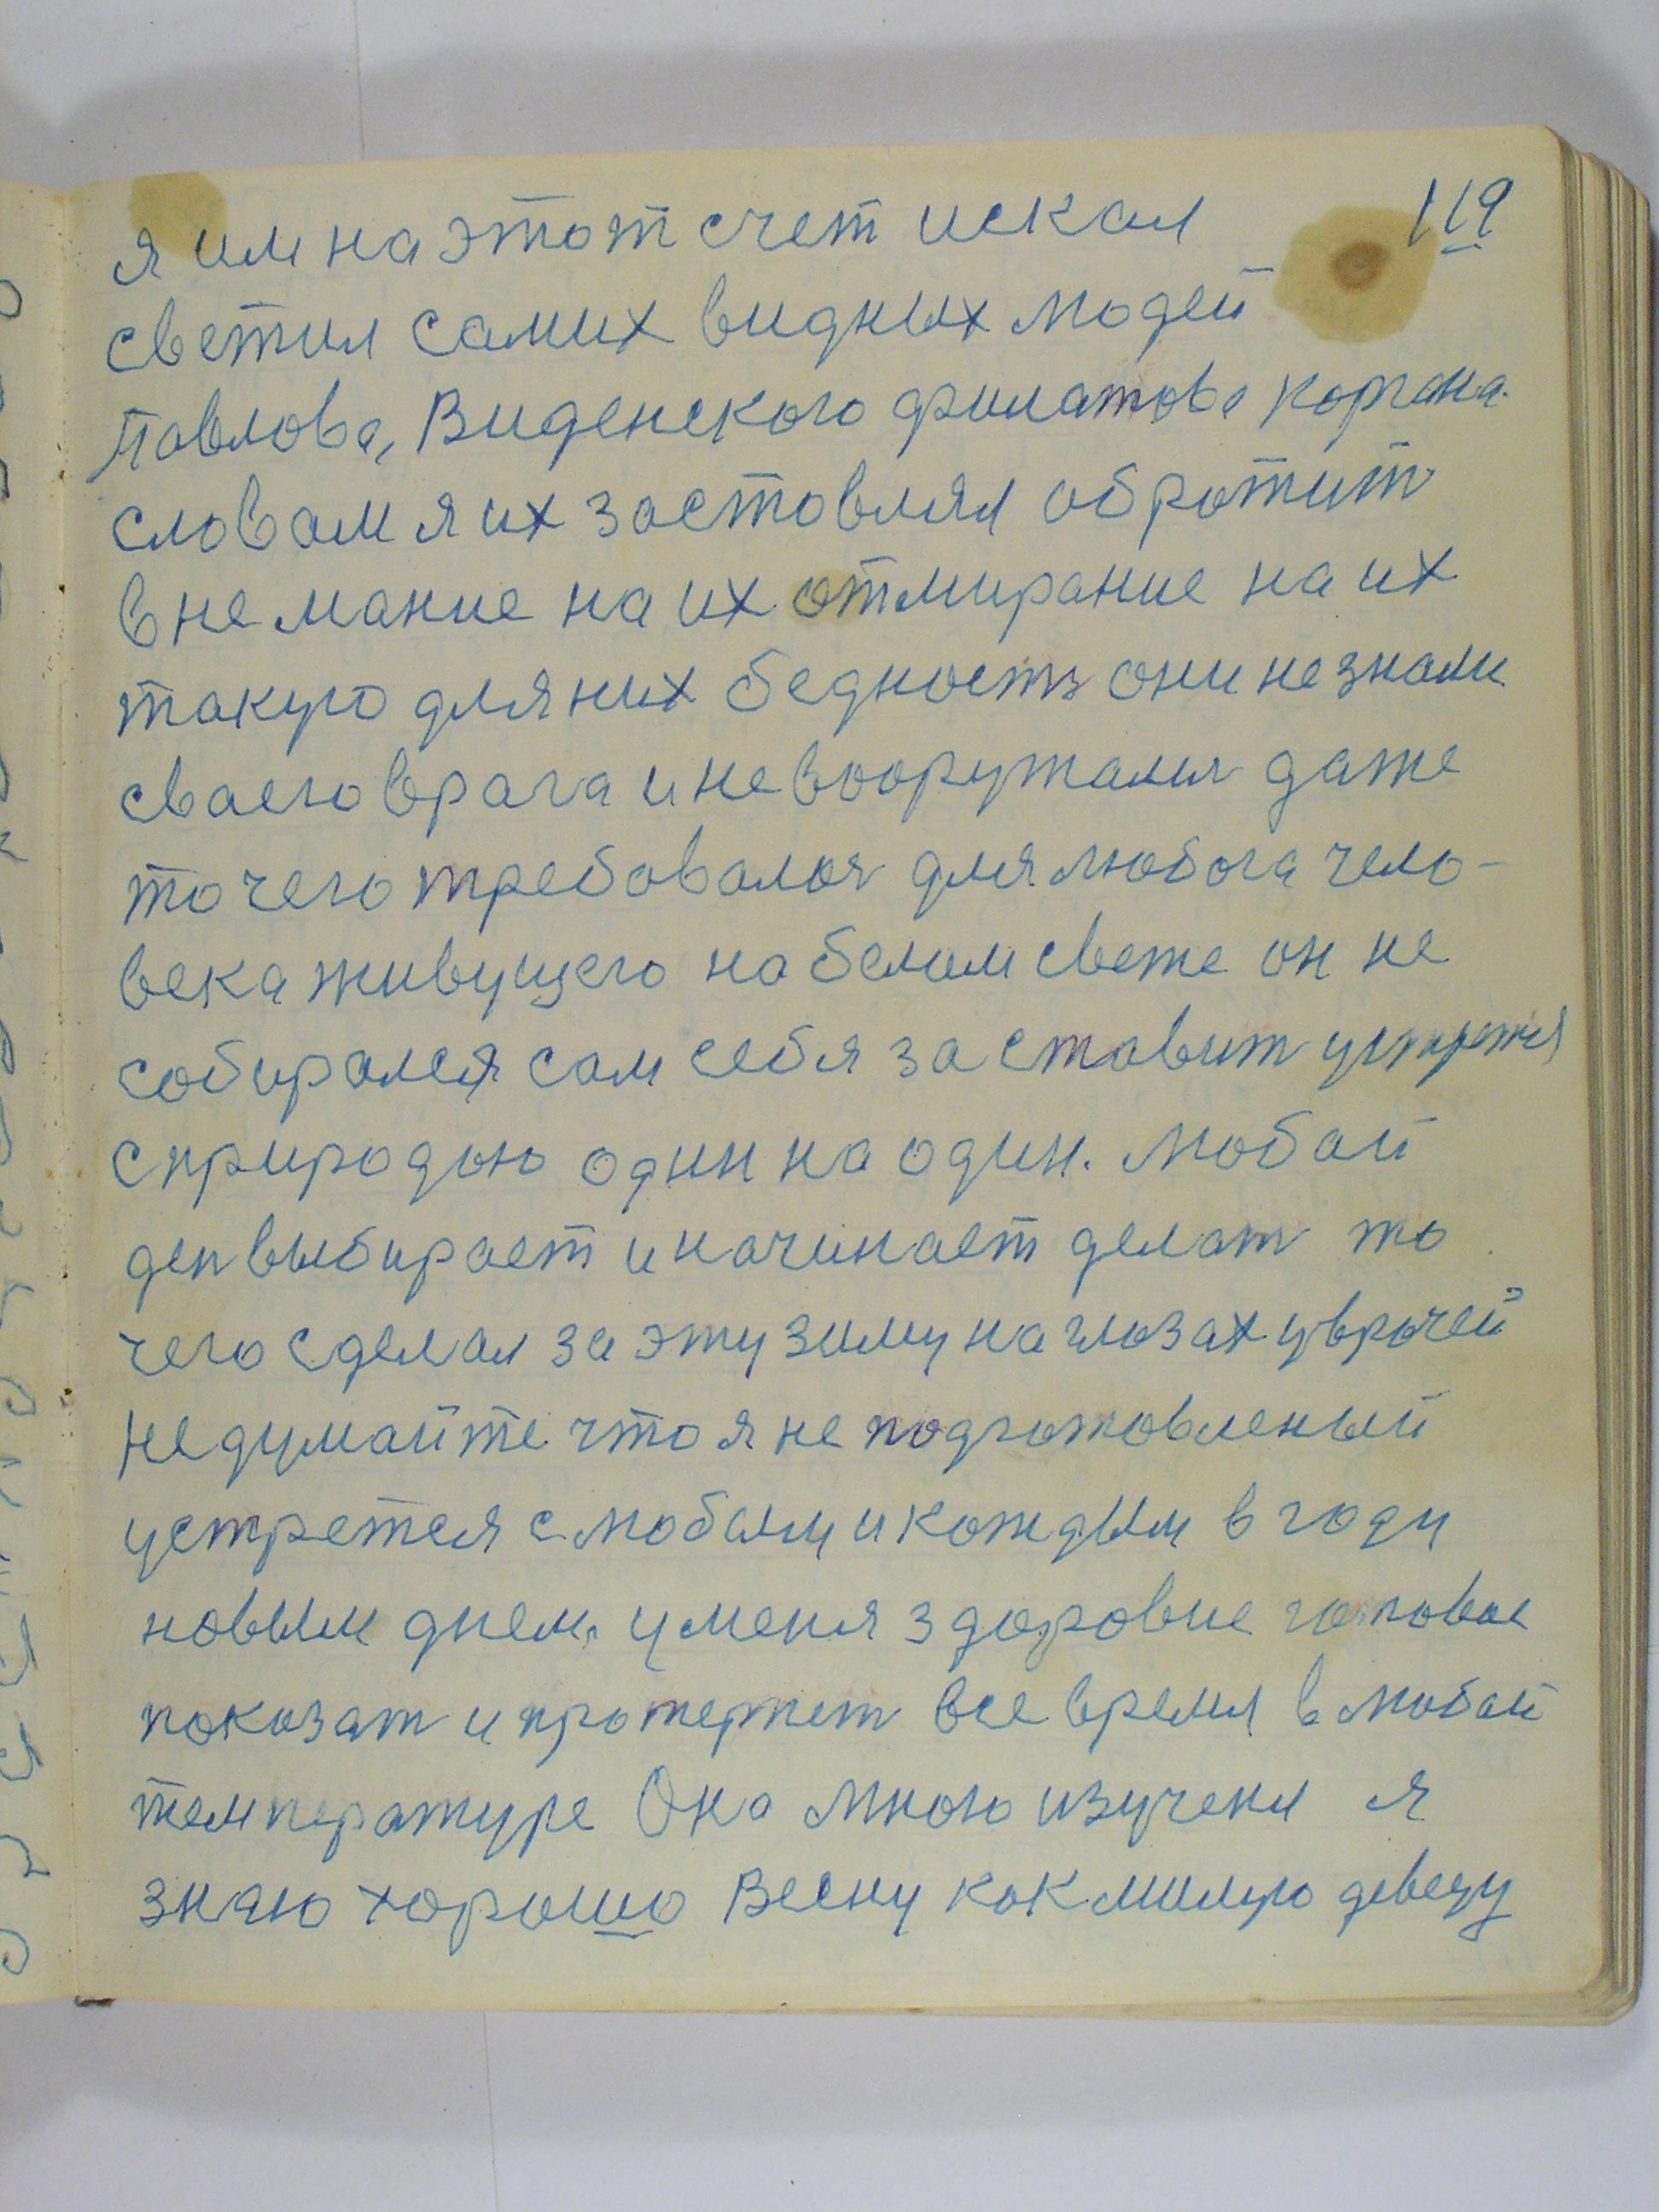 119
я им на этот счет искал
светил самих видных людей
Павлова, Виденского филатова Когана
словам я их заставлял обротит
внемание на их отмирание на их
такую для них бедность они не знали
сваего врага и не вооружался даже
то чего требовалоя для любога чело-
века живущего на белам свете он не
собирался сам себя заставит устретя
с природою один на один. Любай
ден выбирает и начинает делат то
чего сделал за эту зиму на глазах у врачей
Не думайте что я не подготовленый
устретея с любым и каждым в году
новым днем. у меня здоровие готовае
показат и протерпет все время в любай
температуре Она мною изученя я
знаю хорошо Весну как милую девецу